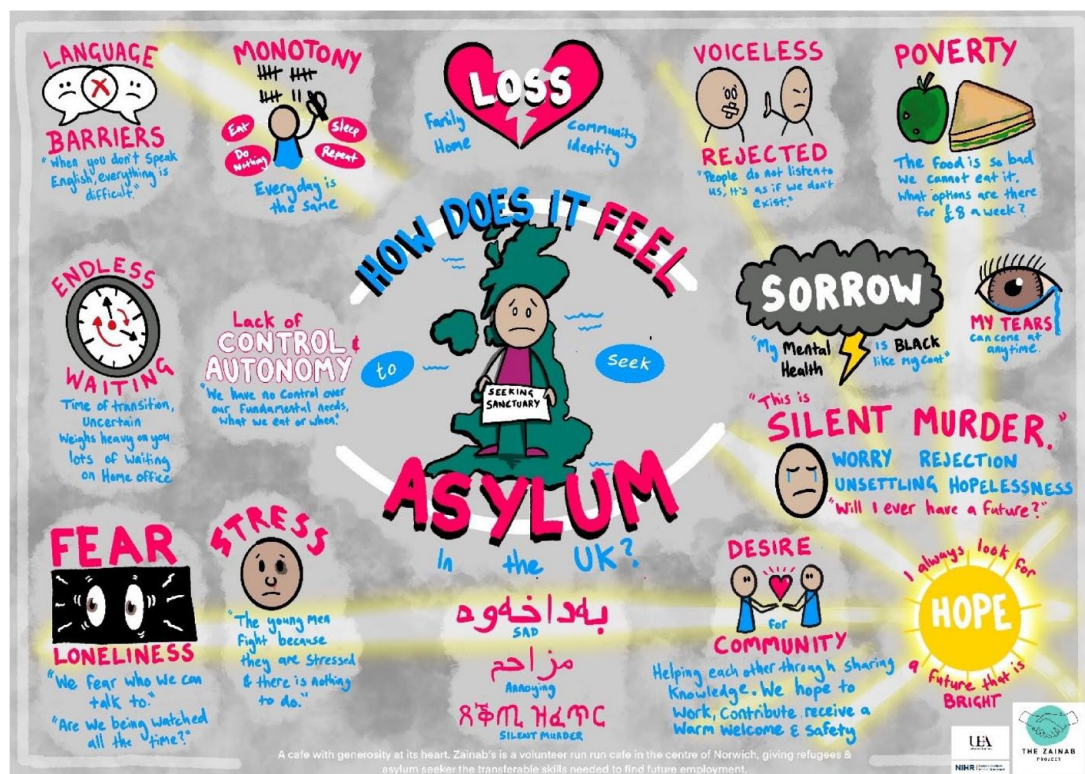 LANGUAGE
BARRIERS
"When you don't speak
English, everything is
difficult."
MONOTONY
Eat
Sleep
Do
Nothing
Repeat
Everyday is
the same
LOSS
Family
Home
Community
Identity
VOICELESS
REJECTED
"People do not listen to
us, it's as if we don't
exist."
POVERTY
The food is so bad
we cannot eat it.
What options are there
for £8 a week?
HOW DOES IT FEEL
to
seek
SEEKING
SANCTUARY
ASYLUM
In the UK?
ENDLESS
WAITING
Time of transition,
Uncertain
Weighs heavy on you
lots of waiting
on Home office
Lack of
CONTROL &
AUTONOMY
"We have no control over
our fundamental needs,
what we eat or when."
SORROW
"My Mental
Health
is BLACK
like my coat"
MY TEARS
can come at
anytime.
"This is
SILENT MURDER."
WORRY REJECTION
UNSETTLING HOPELESSNESS
"Will I ever have a future?"
FEAR
LONELINESS
"We fear who we can
talk to."
"Are we being watched
all the time?"
STRESS
"The young men
fight because
they are stressed
& there is nothing
to do."
بەداخەوە
SAD
مزاحم
Annoying
SILENT MURDER
DESIRE
for
COMMUNITY
Helping each other through sharing
knowledge. We hope to
work, contribute, receive a
warm welcome & safety
I always look for
HOPE
a future that is
BRIGHT
A cafe with generosity at its heart. Zainab's is a volunteer run run cafe in the centre of Norwich, giving refugees &
asylum seeker the transferable skills needed to find future employment.
UEA
NIHR
THE ZAINAB
PROJECT